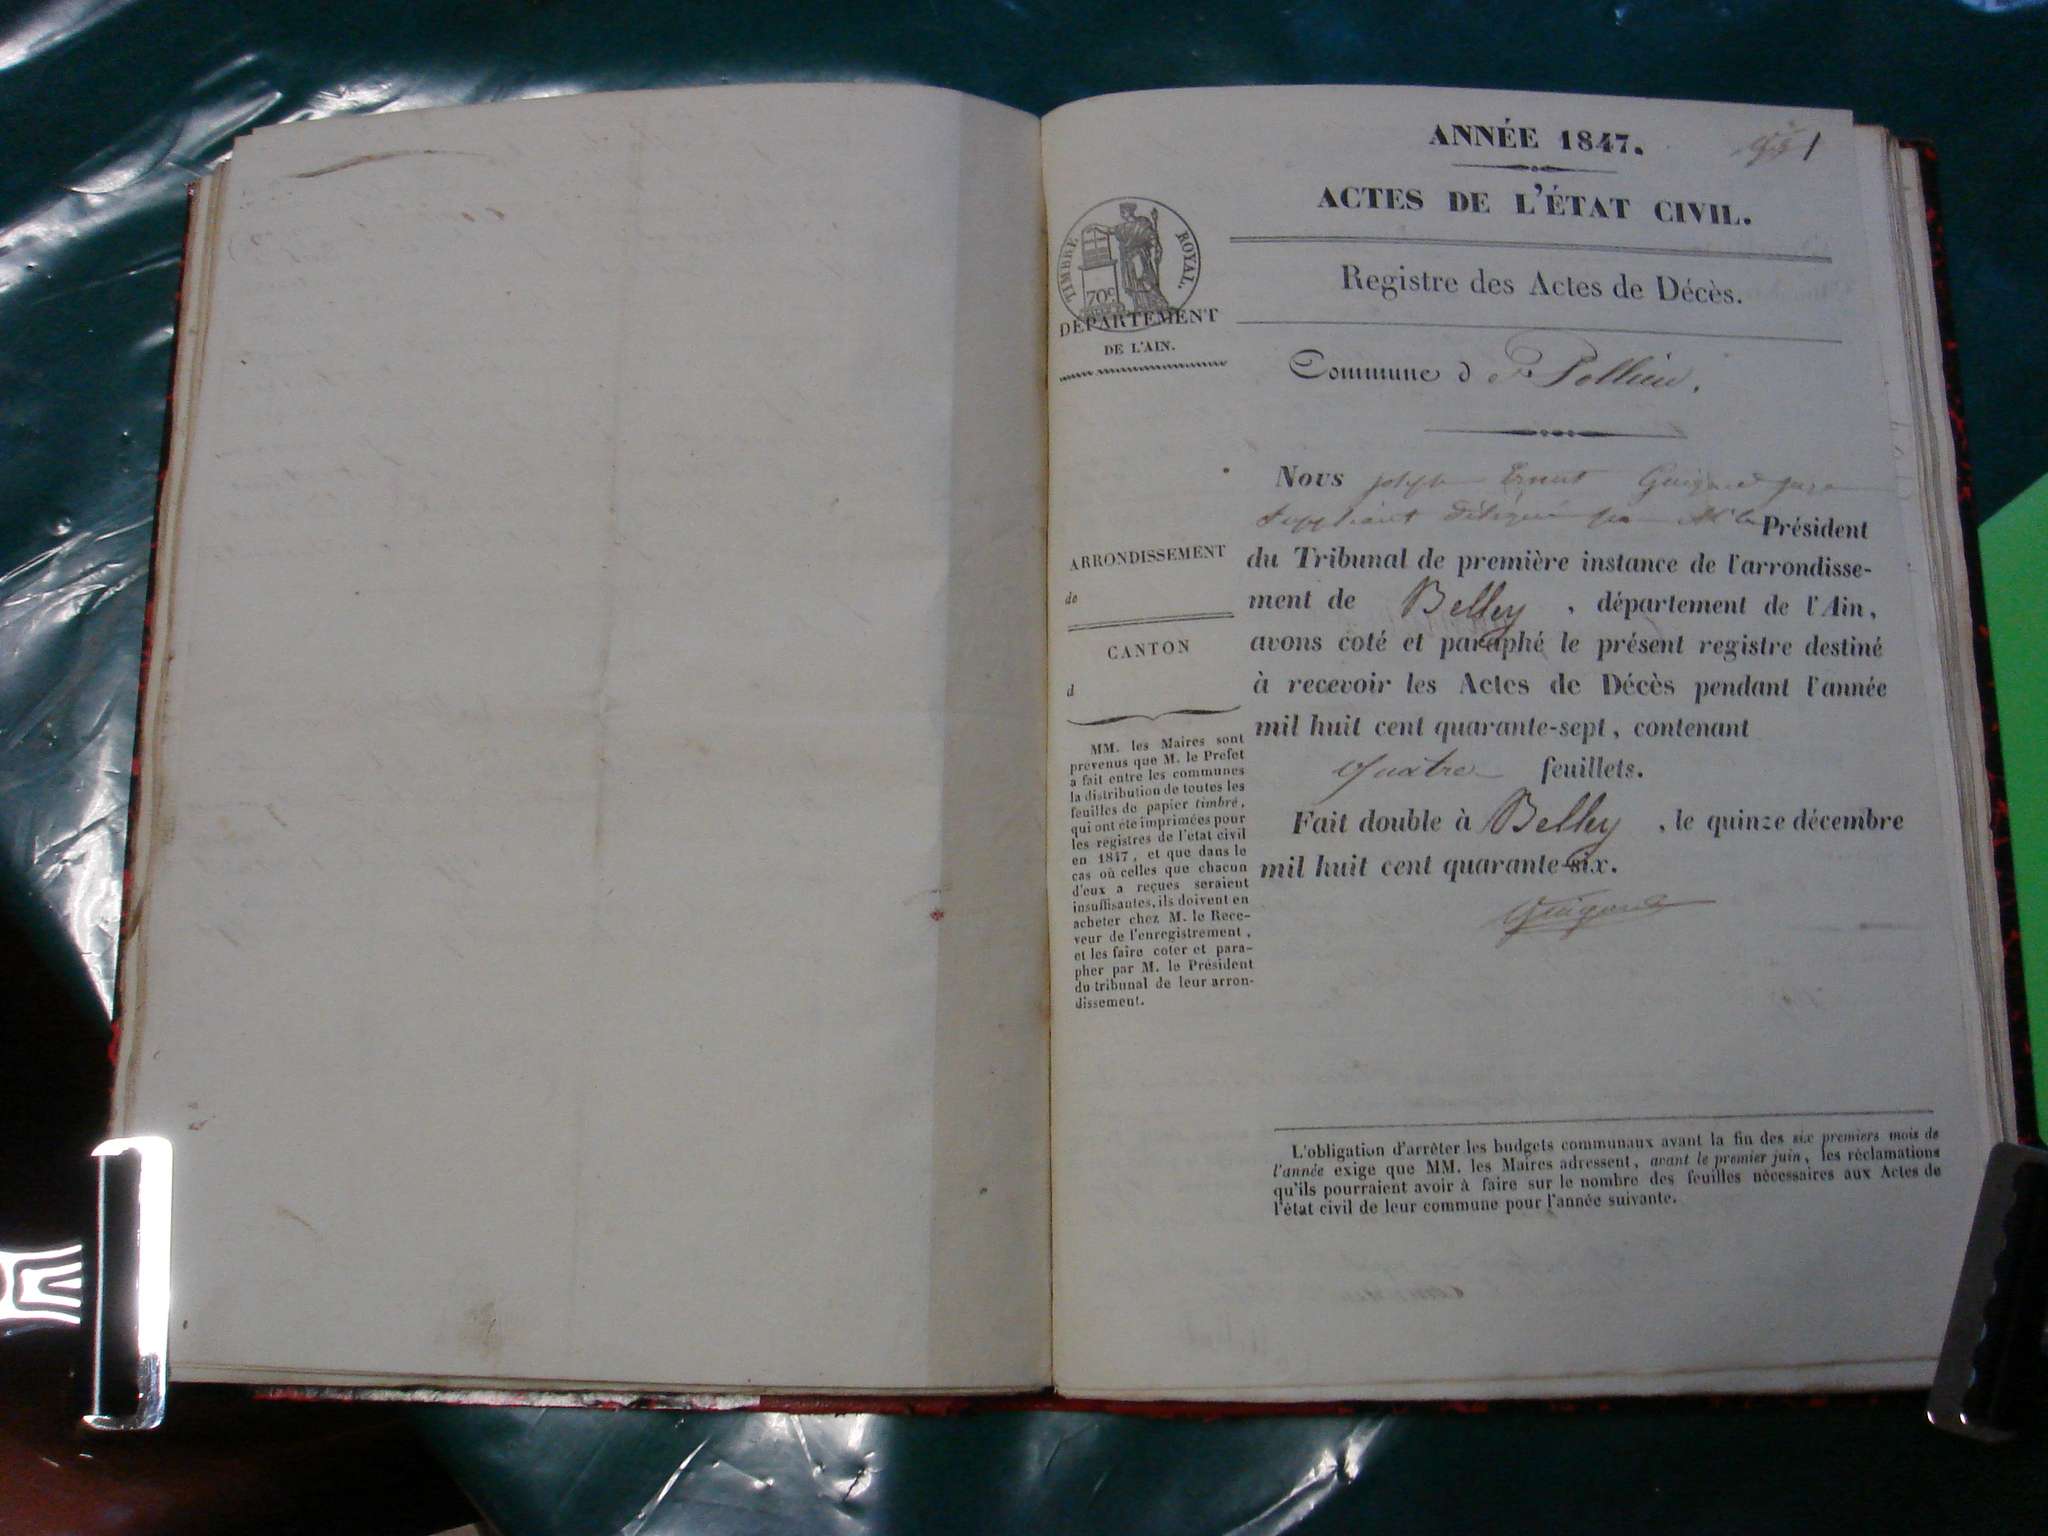 ANNÉE 1847.
1
ACTES DE L'ÉTAT CIVIL.
TIMBRE ROYAL.
70c
Registre des Actes de Décès.
DÉPARTEMENT
DE L'AIN.
Commune d e Pollieu.
Nous Joseph Ernest Guigard juge
suppléant délégué par M. le Président
du Tribunal de première instance de l'arrondisse-
ment de Belley, département de l'Ain,
avons coté et paraphé le présent registre destiné
à recevoir les Actes de Décès pendant l'année
mil huit cent quarante-sept, contenant
quatre feuillets.
Fait double à Belley, le quinze décembre
mil huit cent quarante-six.
Guigard
ARRONDISSEMENT
de
CANTON
d
MM. les Maires sont
prévenus que M. le Préfet
a fait entre les communes
la distribution de toutes les
feuilles de papier timbré,
qui ont été imprimées pour
les registres de l'état civil
en 1847, et que dans le
cas où celles que chacun
d'eux a reçues seraient
insuffisantes, ils doivent en
acheter chez M. le Rece-
veur de l'enregistrement,
et les faire coter et para-
pher par M. le Président
du tribunal de leur arron-
dissement.
L'obligation d'arrêter les budgets communaux avant la fin des six premiers mois de
l'année exige que MM. les Maires adressent, avant le premier juin, les réclamations
qu'ils pourraient avoir à faire sur le nombre des feuilles nécessaires aux Actes de
l'état civil de leur commune pour l'année suivante.